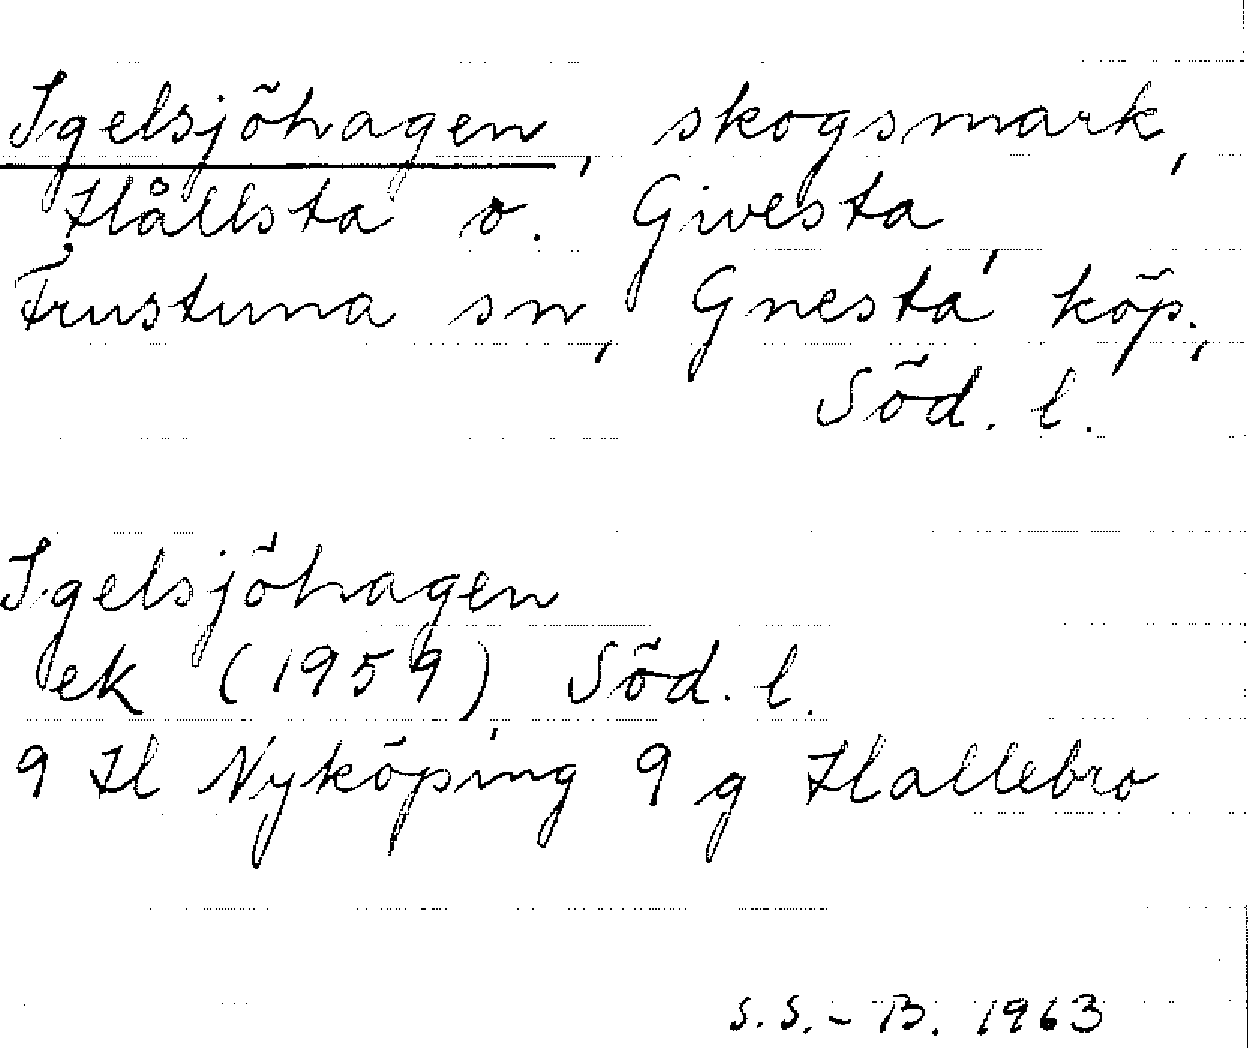 Igelsjöhagen, skogsmark,
Hållsta o. Givesta,
Frustuna sn, Gnesta köp.,
Söd. l.
Igelsjöhagen
ek (1959), Söd. l.
9 H Nyköping 9 g Hallebro
S.S.-B. 1963